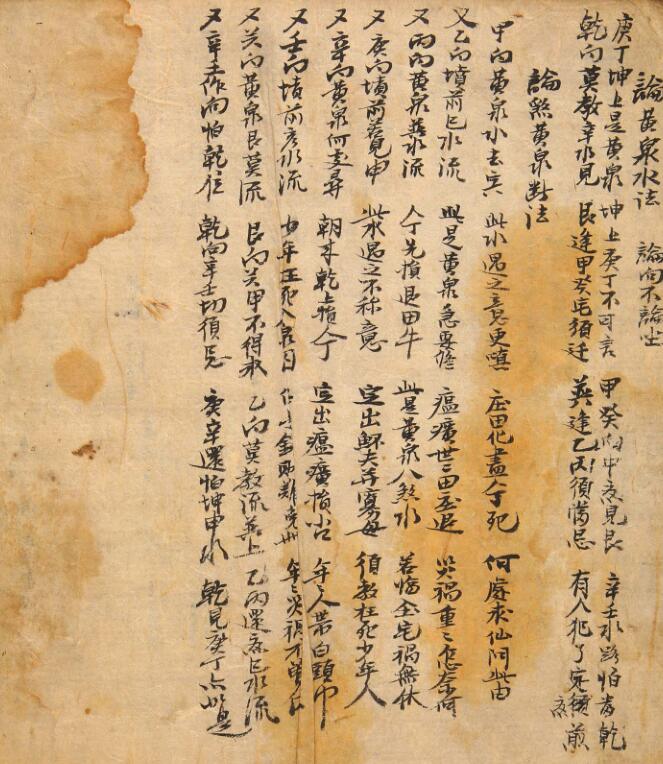 論黃泉水法 論向不論坐
庚丁坤上是黃泉 坤上庚丁不可言 甲癸向中夜見艮 辛壬水路怕當乾
乾向莫教辛水見 艮逢甲癸宅須迁 巽逢乙丙須當忌 有人犯了定須煎
論煞黃泉斷法
甲向黃泉水去寅 此水遇之意更嗔 庄田化盡人丁死 何處求仙問此由
又乙向墳前巳水流 此是黃泉急要 瘟㾮世世田庄退 災禍重重怎奈何
又丙向黃泉巽水流 人丁先損退田牛 此是黃泉八煞水 若傷全宅禍無休
又庚向墳前若見申 此水遇之不称意 定出鰥夫并寡母 須教枉死少年人
又辛向黃泉何處尋 朝來乾上損人丁 定出瘟㾮損小口 年年人帶白頭巾
又壬向墳前亥水流 少年枉死入泉 年年災禍不
又癸向黃泉艮莫流 艮向癸甲不得收 乙向莫教流巽上 乙丙還疼巳水流
又辛壬作向怕乾位 乾向辛壬切須忌 庚辛還怕坤申水 乾見庚丁亦如是